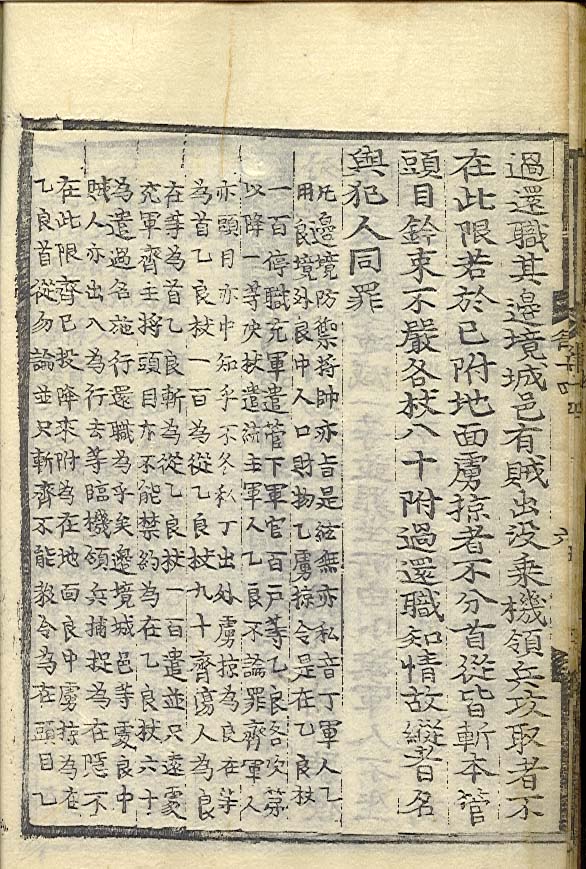 過還職其邊境城邑有賊出没乘機領兵攻取者不
在此限若於已附地面虜掠者不分首從皆斬本管
頭目鈐束不嚴各杖八十附過還職知情故縱者各
與犯人同罪
凡邊境防禦將帥亦旨是絃無亦私音丁軍人乙
用良境外良中人口財物乙虜掠令是在乙良杖
一百停職充軍遣管下軍官百戶等乙良各次第
以降一等决杖遣統主軍人乙良不論罪齊軍人
亦頭目亦中知乎不冬私丁出外虜掠為良在等
為首乙良杖一百為從乙良杖九十齊傷人為良
在等為首乙良斬為從乙良杖一百遣並只遠處
充軍齊主將頭目亦不能禁約為在乙良杖六十
為遣過名施行還職為乎矣邊境城邑等處良中
賊人亦出入為行去等臨機領兵捕捉為在隱不
在此限齊已投降來附為在地面良中虜掠為在
乙良首從勿論並只斬齊不能敎令為在頭目乙